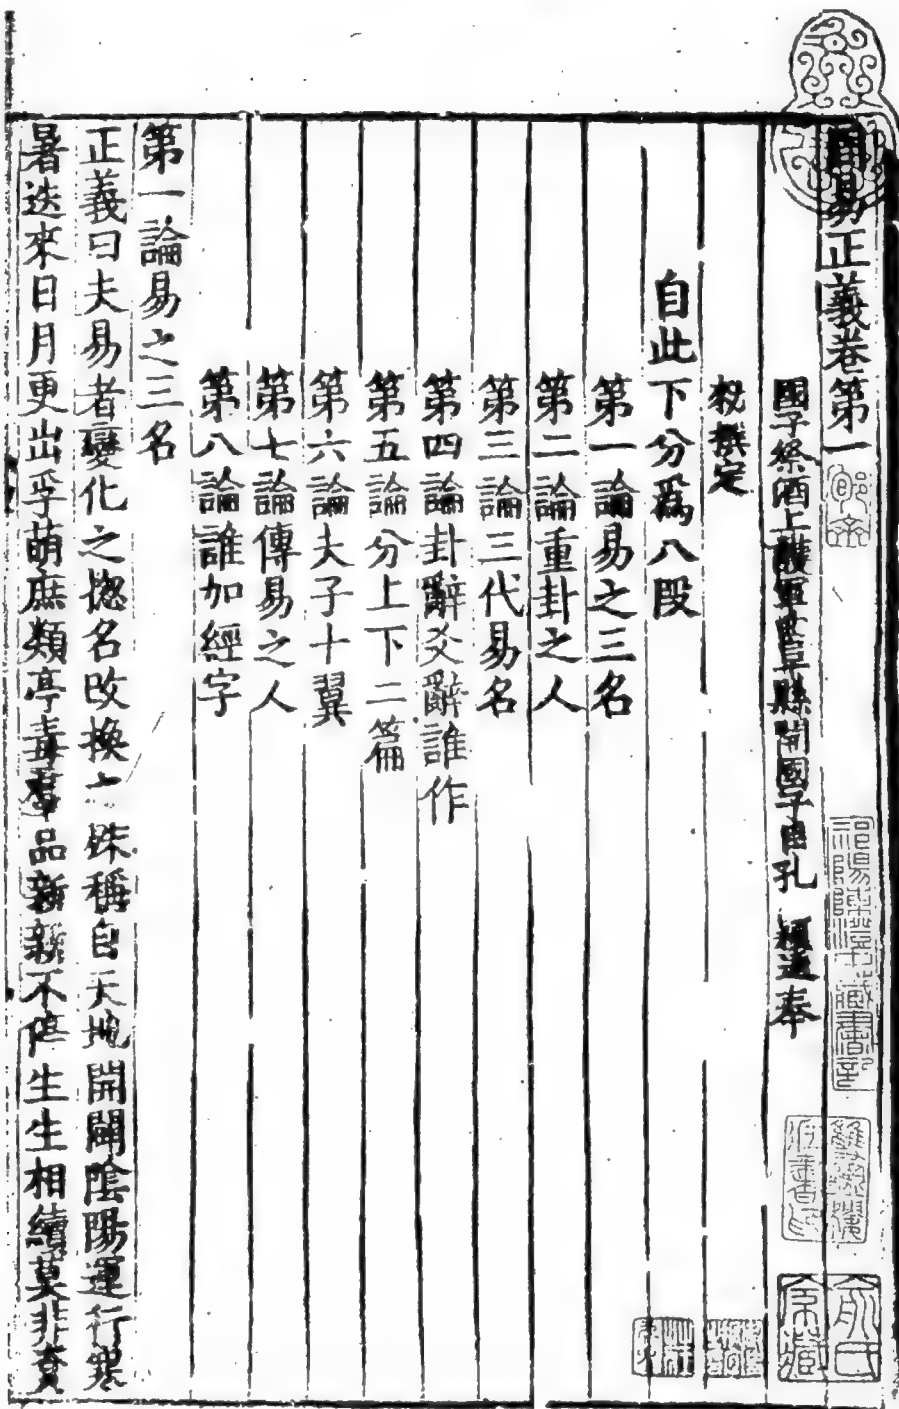 周易正義卷第一
國子祭酒上護軍曲阜縣開國子臣孔 穎達奉
勑撰定
自此下分爲八段
第一論易之三名
第二論重卦之人
第三論三代易名
第四論卦辭爻辭誰作
第五論分上下二篇
第六論夫子十翼
第七論傳易之人
第八論誰加經字
第一論易之三名
正義曰夫易者變化之揔名改換之殊稱自天地開闢陰陽運行寒
暑迭來日月更出孚萌庶類亭毒羣品新新不停生生相續莫非資
俞氏
家藏